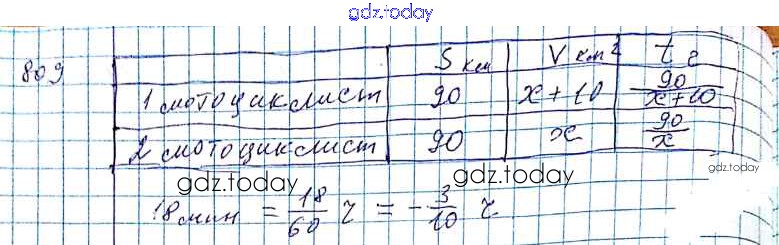 gdz.today
809
S км V км/ч t ч
1 мотоциклист 90 x+10 90/(x+10)
2 мотоциклист 90 x 90/x
gdz.today gdz.today gdz.today
18 мин = 18/60 ч = - 3/10 ч